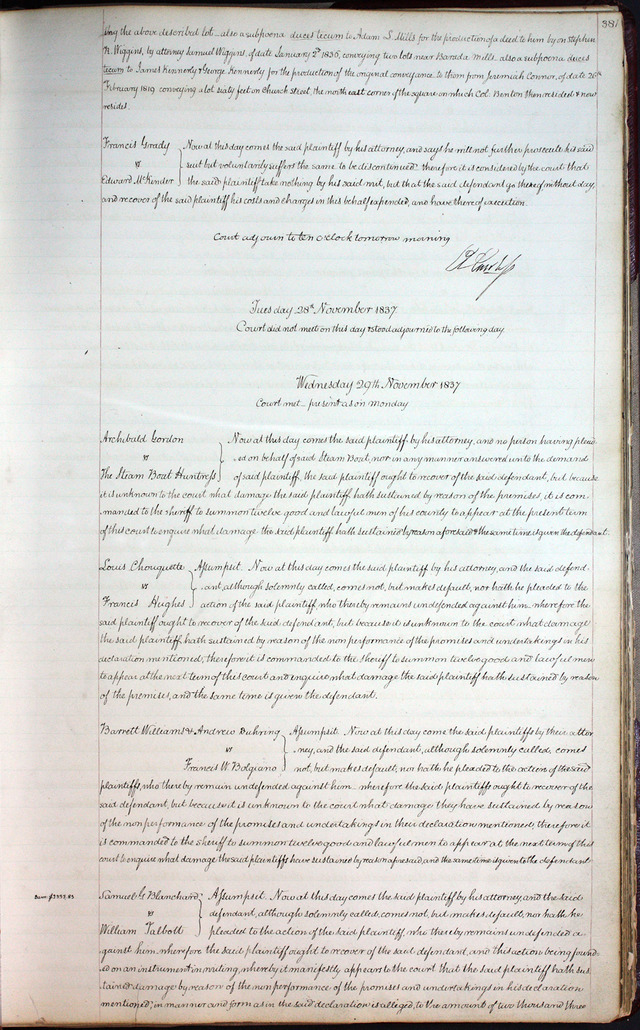 381
ing the above described lot also a subpoena duces tecum to Adam S. Mills for the production of a deed to him by on Stephen
R. Wiggins, by attorney Samuel Wiggins, of date January 2d 1836, conveying two lots near Barada Mills. also a subpoena duces
tecum to James Kennerly & George Kennerly for the production of the original conveyance to them from Jeremiah Connor, of date 26th
February 1819 conveying a lot sixty feet on Church street, the north east corner of the square on which Col. Benton then resided & now
resides.
Francis Grady Now at this day comes the said plaintiff by his attorney, and says he will not further prosecute his said
vs suit but voluntarily suffers the same to be discontinued: therefore it is considered by the court that
Edward McKinder the said plaintiff take nothing by his said suit, but that the said defendant go thereof without day,
and recover of the said plaintiff his costs and charges in this behalf expended, and have thereof execution.
Court adjourn to ten o'clock tomorrow morning
Tuesday 28th November 1837.
Court did not meet on this day & stood adjourned to the following day
Wednesday 29th November 1837
Court met present as on monday
Archibald Gordon Now at this day comes the said plaintiff by his attorney, and no person having plead-
vs ed on behalf of said Steam Boat, nor in any manner answered unto the demand
The Steam Boat Huntress of said plaintiff, the said plaintiff ought to recover of the said defendant, but because
it is unknown to the court what damage the said plaintiff hath sustained by reason of the premises, it is com-
manded to the sheriff to summon twelve good and lawful men of his county to appear at the present term
of this court to enquire what damage the said plaintiff hath sustained by reason aforesaid & the same time is given the defendant.
Louis Chouquette Assumpsit. Now at this day comes the said plaintiff by his attorney, and the said defend-
vs -ant, although solemnly called, comes not, but makes default, nor hath he pleaded to the
Francis Hughes action of the said plaintiff, who thereby remains undefended against him wherefore the
said plaintiff ought to recover of the said defendant, but because it is unknown to the court what damage
the said plaintiff hath sustained by reason of the non performance of the promises and undertakings in his
declaration mentioned, therefore it is commanded to the sheriff to summon twelve good and lawful men
to appear at the next term of this court and enquire what damage the said plaintiff hath sustained by reason
of the premises, and the same time is given the defendant.
Barrett Williams & Andrew Duhring Assumpsit. Now at this day come the said plaintiffs by their attor
vs ney, and the said defendant, although solemnly called, comes
Francis W. Bolgiano not, but makes default, nor hath he pleaded to the action of the said
plaintiffs, who thereby remain undefended against him wherefore the said plaintiffs ought to recover of the
said defendant, but because it is unknown to the court what damage they have sustained by reason
of the non performance of the promises and undertakings in their declaration mentioned, therefore it
is commanded to the sheriff to summon twelve good and lawful men to appear at the next term of this
court to enquire what damage the said plaintiffs have sustained by reason aforesaid, and the same time is given to the defendant
Samuel G Blanchard Assumpsit. Now at this day comes the said plaintiff by his attorney, and the said
vs defendant, although solemnly called, comes not, but makes default, nor hath he
William Talbott pleaded to the action of the said plaintiff, who thereby remains undefended a-
gainst him wherefore the said plaintiff ought to recover of the said defendant, and this action being found-
ed on an instrument in writing, whereby it manifestly appears to the court that the said plaintiff hath sus
tained damage by reason of the non performance of the promises and undertakings in his declaration
mentioned, in manner and form as in the said declaration is alleged, to the amount of two thousand three